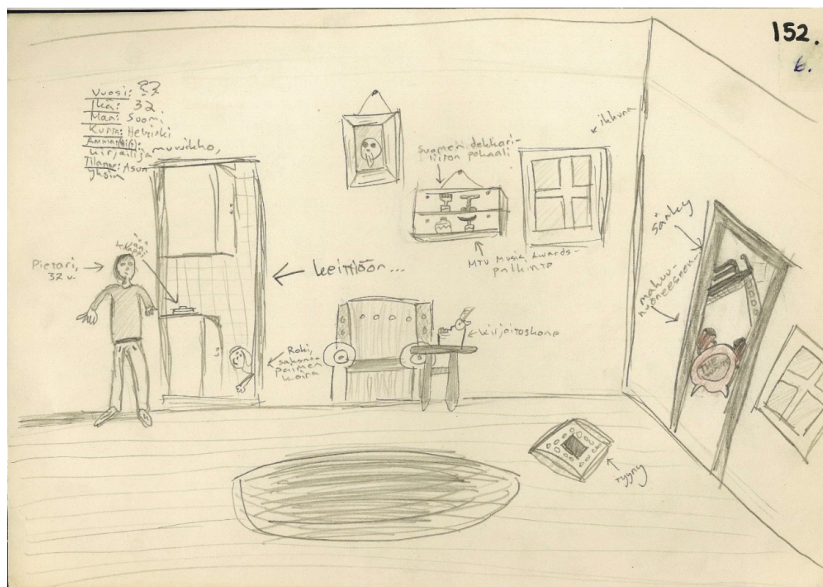 152.
6.
Vuosi: ??
Ikä: 32
Maa: Suomi
Kunta: Helsinki
Ammatti(t): muusikko,
kirjailija
Tilanne: Asuu
yksin
Pietari,
32 v.
keittiöön...
Roki,
saksan-
paimen-
koira
Suomen dekkari-
liiton pokaali
MTV Music Awards-
palkinto
ikkuna
kirjoituskone
sänky
makuu-
huoneeseen
tyyny